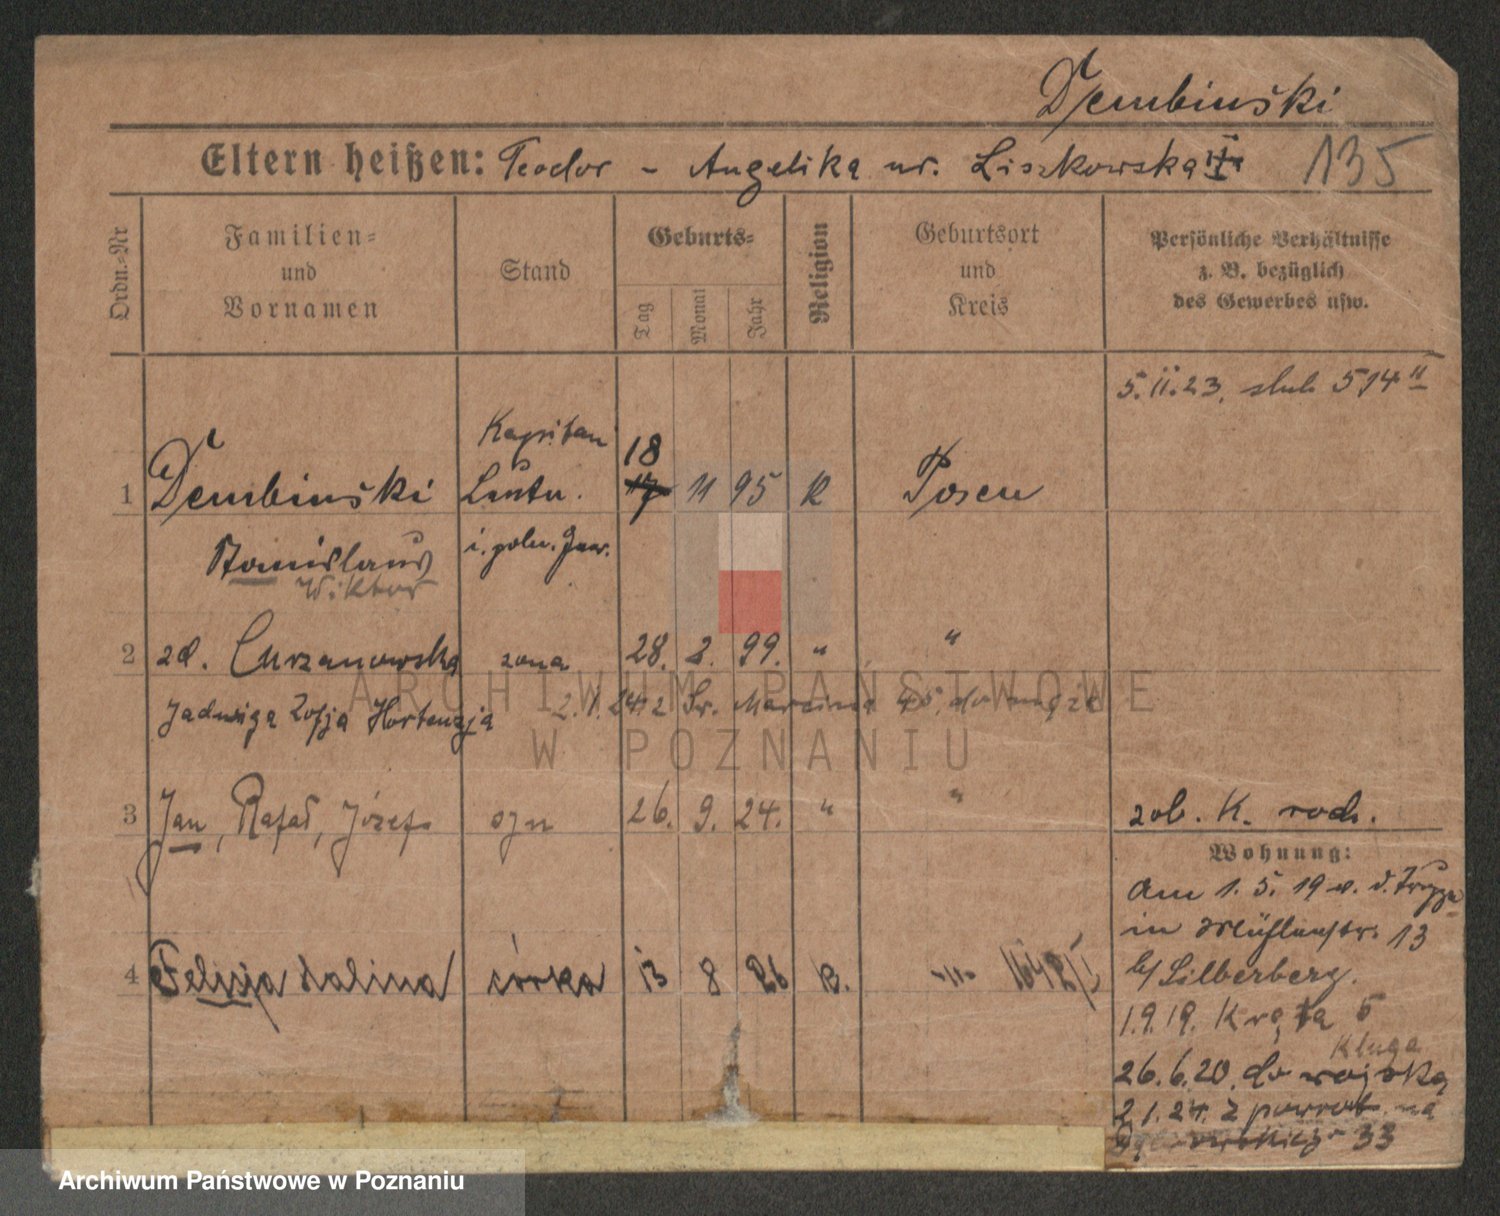 Dembinski
Eltern heißen: Teodor - Angelika ur. Liszkowska 135
Ordn.-Nr
Familien-
und
Vornamen
Stand
Geburts-
Tag
Monat
Jahr
Religion
Geburtsort
und
Kreis
Persönliche Verhältnisse
z. B. bezüglich
des Gewerbes usw.
5.II.23. slub 514 II
Kapitan
18
1 Dembinski Leutn. 17 11 95 K Posen
Stanislaus i. poln.
Wiktor
2 zd. Curzanowska zona 28. 2. 99. " "
Jadwiga Zofja Hortenzja 2.1.24. z Sw. Marcina 45. do męża
3 Jan, Rafał, Józef syn 26. 9. 24. " "
zob. K. rodz.
Wohnung:
am 1. 5. 19 v. d.
in Mühlenstr. 13
4 Felicja Halina córka 13 8 26 K. -"- 1648/I
b/ Silberberg.
1.9.19. Kręta 5
Kluga
26.6.20. do wojska
2.1.24. z powrot. na
33
ARCHIWUM PAŃSTWOWE
W POZNANIU
Archiwum Państwowe w Poznaniu